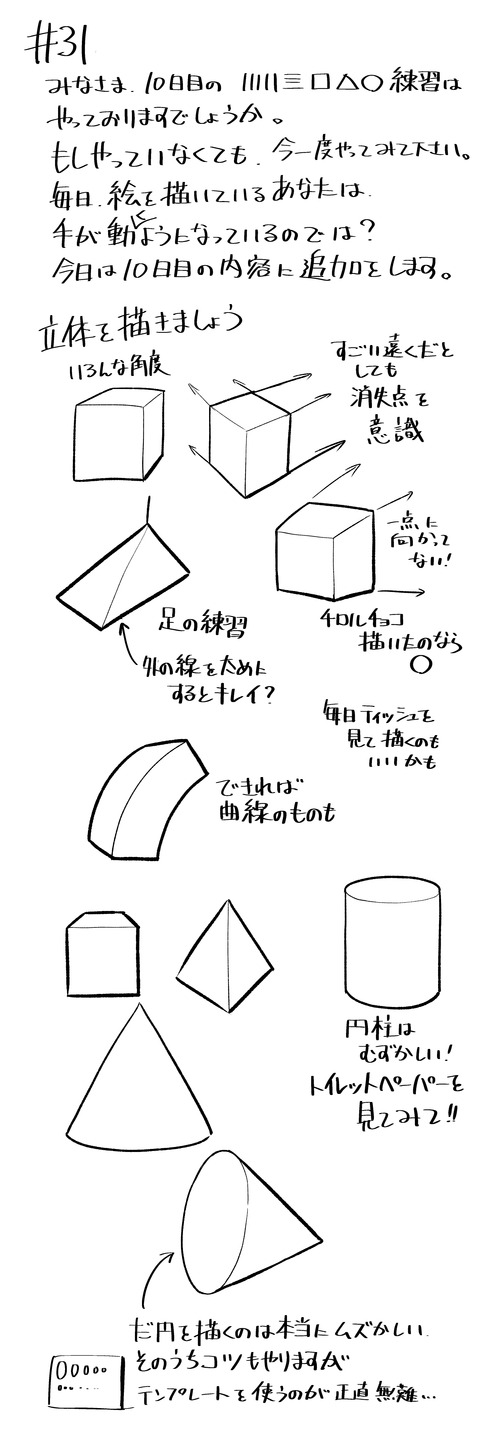 #31
みなさま、10日目の |||||三□△○練習は
やっておりますでしょうか。
もしやっていなくても、今一度やってみて下さい。
毎日、絵を描いているあなたは、
手が動くようになっているのでは?
今日は10日目の内容に追加をします。
立体を描きましょう
いろんな角度
すごい遠くだと
しても
消失点を
意識
一点に
向かって
ない!
足の練習
外の線を太めに
するとキレイ?
チロルチョコ
描いたのなら
○
毎日ティッシュを
見て描くのも
いいかも
できれば
曲線のものも
円柱は
むずかしい!
トイレットペーパーを
見てみて!!
だ円を描くのは本当にムズかしい、
そのうちコツもやりますが
テンプレートを使うのが正直無難…